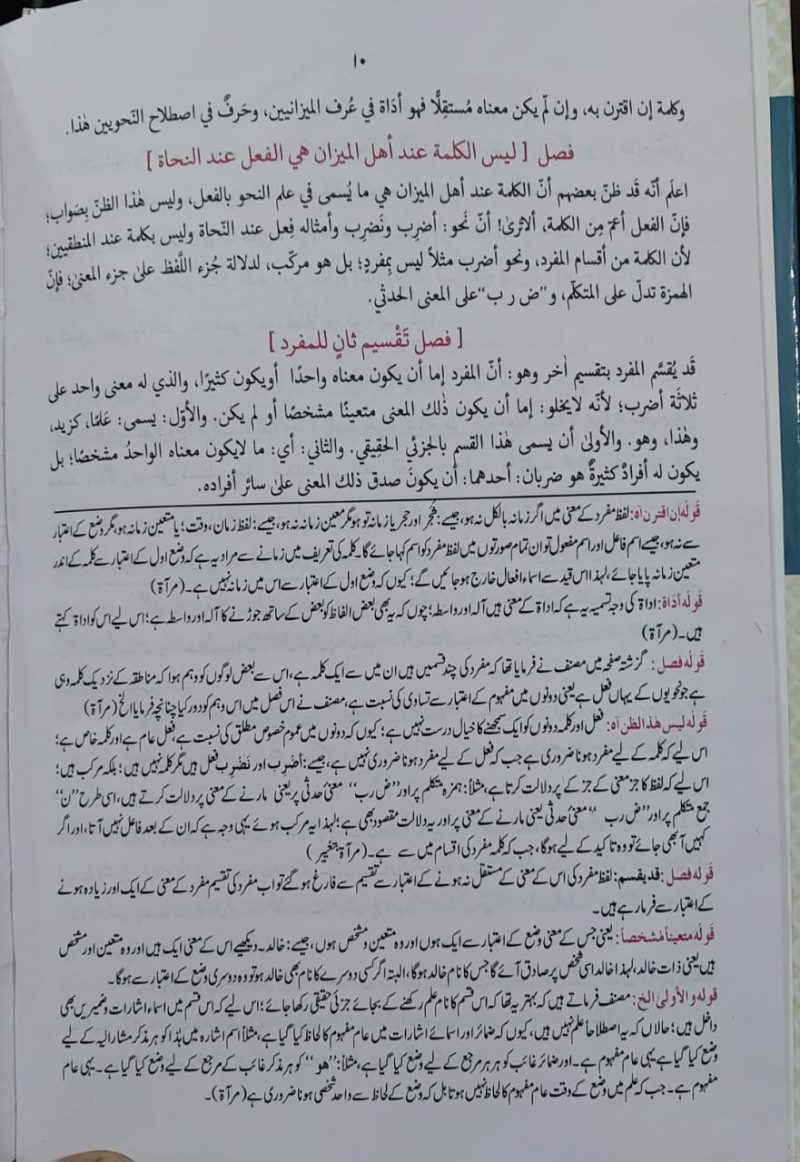 ١٠
وكلمة إن اقترن به، وإن لّم يكن معناه مُستقِلًّا فهو أدَاة في عُرف الميزانيين، وحَرفٌ في اصطلاح النّحويين هٰذا.
فصل [ ليس الكلمة عند أهل الميزان هي الفعل عند النحاة ]
اعلَم أنّه قَد ظنّ بعضهم أنّ الكلمة عند أهل الميزان هي ما يُسمى في علم النحو بالفعل، وليس هٰذا الظنّ بِصَواب؛
فإنّ الفعل أعمّ مِن الكلمة، ألاترىٰ! أنّ نَحو: أضرِب ونَضرِب وأمثاله فِعل عند النّحاة وليس بكلمة عند المنطقيين؛
لأن الكلمة من أقسام المفرد، ونحو أضرب مثلاً ليس بِمفردٍ؛ بل هو مركّب، لدلالة جُزء اللَّفظ علىٰ جزء المعنىٰ؛ فإنّ
الهمزة تدلّ على المتكلّم، و”ض ر ب“ على المعنى الحدثي.
[ فصل تَقْسيم ثانٍ للمفرد ]
قَد يُقسَّم المفرد بتقسيم أخر وهو: أنّ المفرد إما أن يكون معناه واحدًا أويكون كثيرًا، والذي له معنى واحد على
ثلاثَة أضرب؛ لأنّه لايخلو: إما أن يكون ذٰلك المعنى متعينًا مشخصًا أو لم يكن. والأوّل: يسمى: عَلمًا، كزيد،
وهٰذا، وهو. والأولىٰ أن يسمى هٰذا القسم بالجزئي الحقيقي. والثاني: أي: ما لايكون معناه الواحدُ مشخصًا؛ بل
يكون له أفرادٌ كثيرةٌ هو ضربان: أحدهما: أن يكونَ صدق ذلك المعنى علىٰ سائر أفراده.
قولہ إن اقترن آہ: لفظ مفرد کے معنی میں اگر زمانہ بالکل نہ ہو، جیسے: شجر اور حجر یا زمانہ تو ہو مگر معین زمانہ نہ ہو، جیسے: لفظ زمان، وقت؛ یا متعین زمانہ ہو، مگر وضع کے اعتبار
سے نہ ہو، جیسے اسم فاعل اور اسم مفعول تو ان تمام صورتوں میں لفظ مفرد کو اسم کہا جائے گا۔ کلمہ کی تعریف میں زمانے سے مراد یہ ہے کہ وضع اول کے اعتبار سے کلمہ کے اندر
متعین زمانہ پایا جائے، لہذا اس قید سے اسماء افعال خارج ہو جائیں گے؛ کیوں کہ وضع اول کے اعتبار سے اس میں زمانہ نہیں ہے۔ (مرآۃ)
قولہ أداۃ: اداۃ کی وجہ تسمیہ یہ ہے کہ اداۃ کے معنی ہیں آلہ اور واسطہ؛ چوں کہ یہ بھی بعض الفاظ کو بعض کے ساتھ جوڑنے کا آلہ اور واسطہ ہے؛ اس لیے اس کو اداۃ کہتے
ہیں۔ (مرآۃ)
قولہ فصل: گزشتہ صفحہ میں مصنف نے فرمایا تھا کہ مفرد کی چند قسمیں ہیں ان میں سے ایک کلمہ ہے، اس سے بعض لوگوں کو وہم ہوا کہ مناطقہ کے نزدیک کلمہ وہی
ہے جو نحویوں کے یہاں فعل ہے یعنی دونوں میں مفہوم کے اعتبار سے تساوی کی نسبت ہے، مصنف نے اس فصل میں اس وہم کو دور کیا چنانچہ فرمایا الخ (مرآۃ)
قولہ لیس ھذا الظن آہ: فعل اور کلمہ دونوں کو ایک سمجھنے کا خیال درست نہیں ہے؛ کیوں کہ دونوں میں عموم خصوص مطلق کی نسبت ہے فعل عام ہے اور کلمہ خاص ہے؛
اس لیے کہ کلمہ کے لیے مفرد ہونا ضروری ہے جب کہ فعل کے لیے مفرد ہونا ضروری نہیں ہے، جیسے: أضرِب اور نَضرِب فعل ہیں مگر کلمہ نہیں ہیں؛ بلکہ مرکب ہیں؛
اس لیے کہ لفظ کا جز معنی کے جز کے پر دلالت کرتا ہے، مثلاً: ہمزہ متکلم پر اور ”ض رب“ معنی حدثی پر یعنی مارنے کے معنی پر دلالت کرتے ہیں، اسی طرح ”ن“
جمع متکلم پر اور ”ض رب“ معنی حدثی یعنی مارنے کے معنی پر اور یہ دلالت مقصود بھی ہے؛ لہذا یہ مرکب ہوئے یہی وجہ ہے کہ ان کے بعد فاعل نہیں آتا، اور اگر
کہیں آ بھی جائے تو وہ تاکید کے لیے ہوگا، جب کہ کلمہ مفرد کی اقسام میں سے ہے۔ (مرآۃ بتغییر)
قولہ فصل: قد یقسم: لفظ مفرد کی اس کے معنی کے مستقل نہ ہونے کے اعتبار سے تقسیم سے فارغ ہو گئے تو اب مفرد کی تقسیم مفرد کے معنی کے ایک اور زیادہ ہونے
کے اعتبار سے فرما رہے ہیں۔
قولہ متعیناً مشخصاً: یعنی جس کے معنی وضع کے اعتبار سے ایک ہوں اور وہ متعین و مشخص ہوں، جیسے: خالد۔ دیکھیے اس کے معنی ایک ہیں اور وہ متعین اور مشخص
ہیں یعنی ذات خالد، لہذا خالد اسی شخص پر صادق آئے گا جس کا نام خالد ہوگا، البتہ اگر کسی دوسرے کا نام بھی خالد ہو تو وہ دوسری وضع کے اعتبار سے ہوگا۔
قولہ والأولیٰ الخ: مصنف فرماتے ہیں کہ بہتر یہ تھا کہ اس قسم کا نام علم رکھنے کے بجائے جزئی حقیقی رکھا جائے؛ اس لیے کہ اس قسم میں اسماء اشارات و ضمیریں بھی
داخل ہیں؛ حالاں کہ یہ اصطلاحا علم نہیں ہیں، کیوں کہ ضمائر اور اسمائے اشارات میں عام مفہوم کا لحاظ کیا گیا ہے، مثلاً اسم اشارہ میں ہٰذا کو ہر مذکر مشار الیہ کے لیے
وضع کیا گیا ہے یہی عام مفہوم ہے۔ اور ضمائر غائب کو ہر ہر مرجع کے لیے وضع کیا گیا ہے، مثلاً: ”ھو“ کو ہر مذکر غائب کے مرجع کے لیے وضع کیا گیا ہے۔ یہی عام
مفہوم ہے۔ جب کہ علم میں وضع کے وقت عام مفہوم کا لحاظ نہیں ہوتا بل کہ وضع کے لحاظ سے واحد شخصی ہونا ضروری ہے (مرآۃ)۔